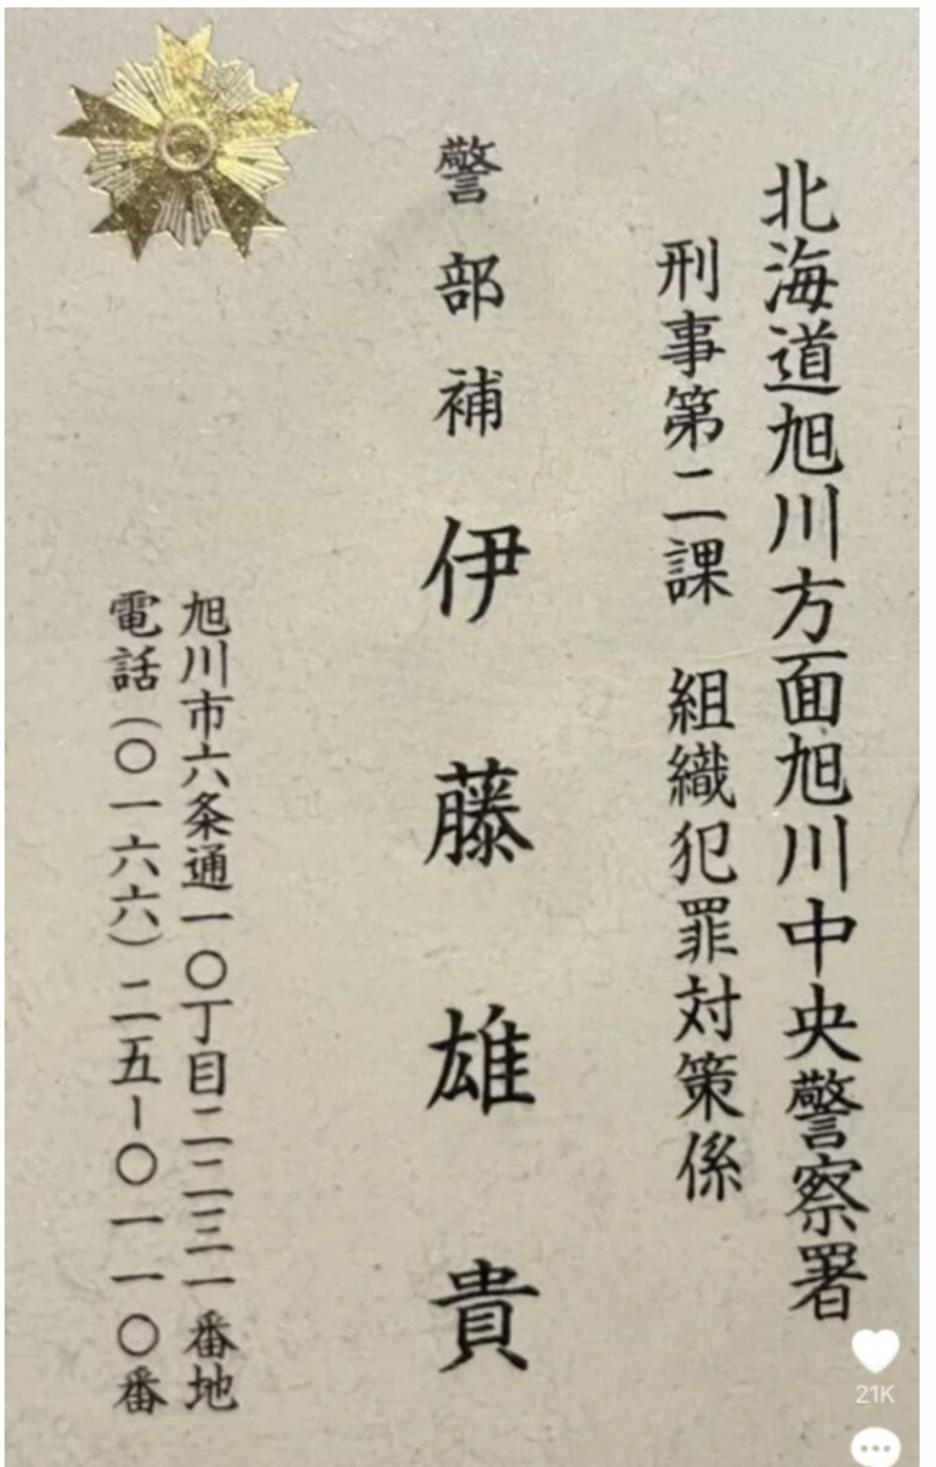 北海道旭川方面旭川中央警察署
刑事第二課 組織犯罪対策係
警部補 伊藤雄貴
旭川市六条通一〇丁目二二三一番地
電話(〇一六六)二五-〇一一〇番
21K